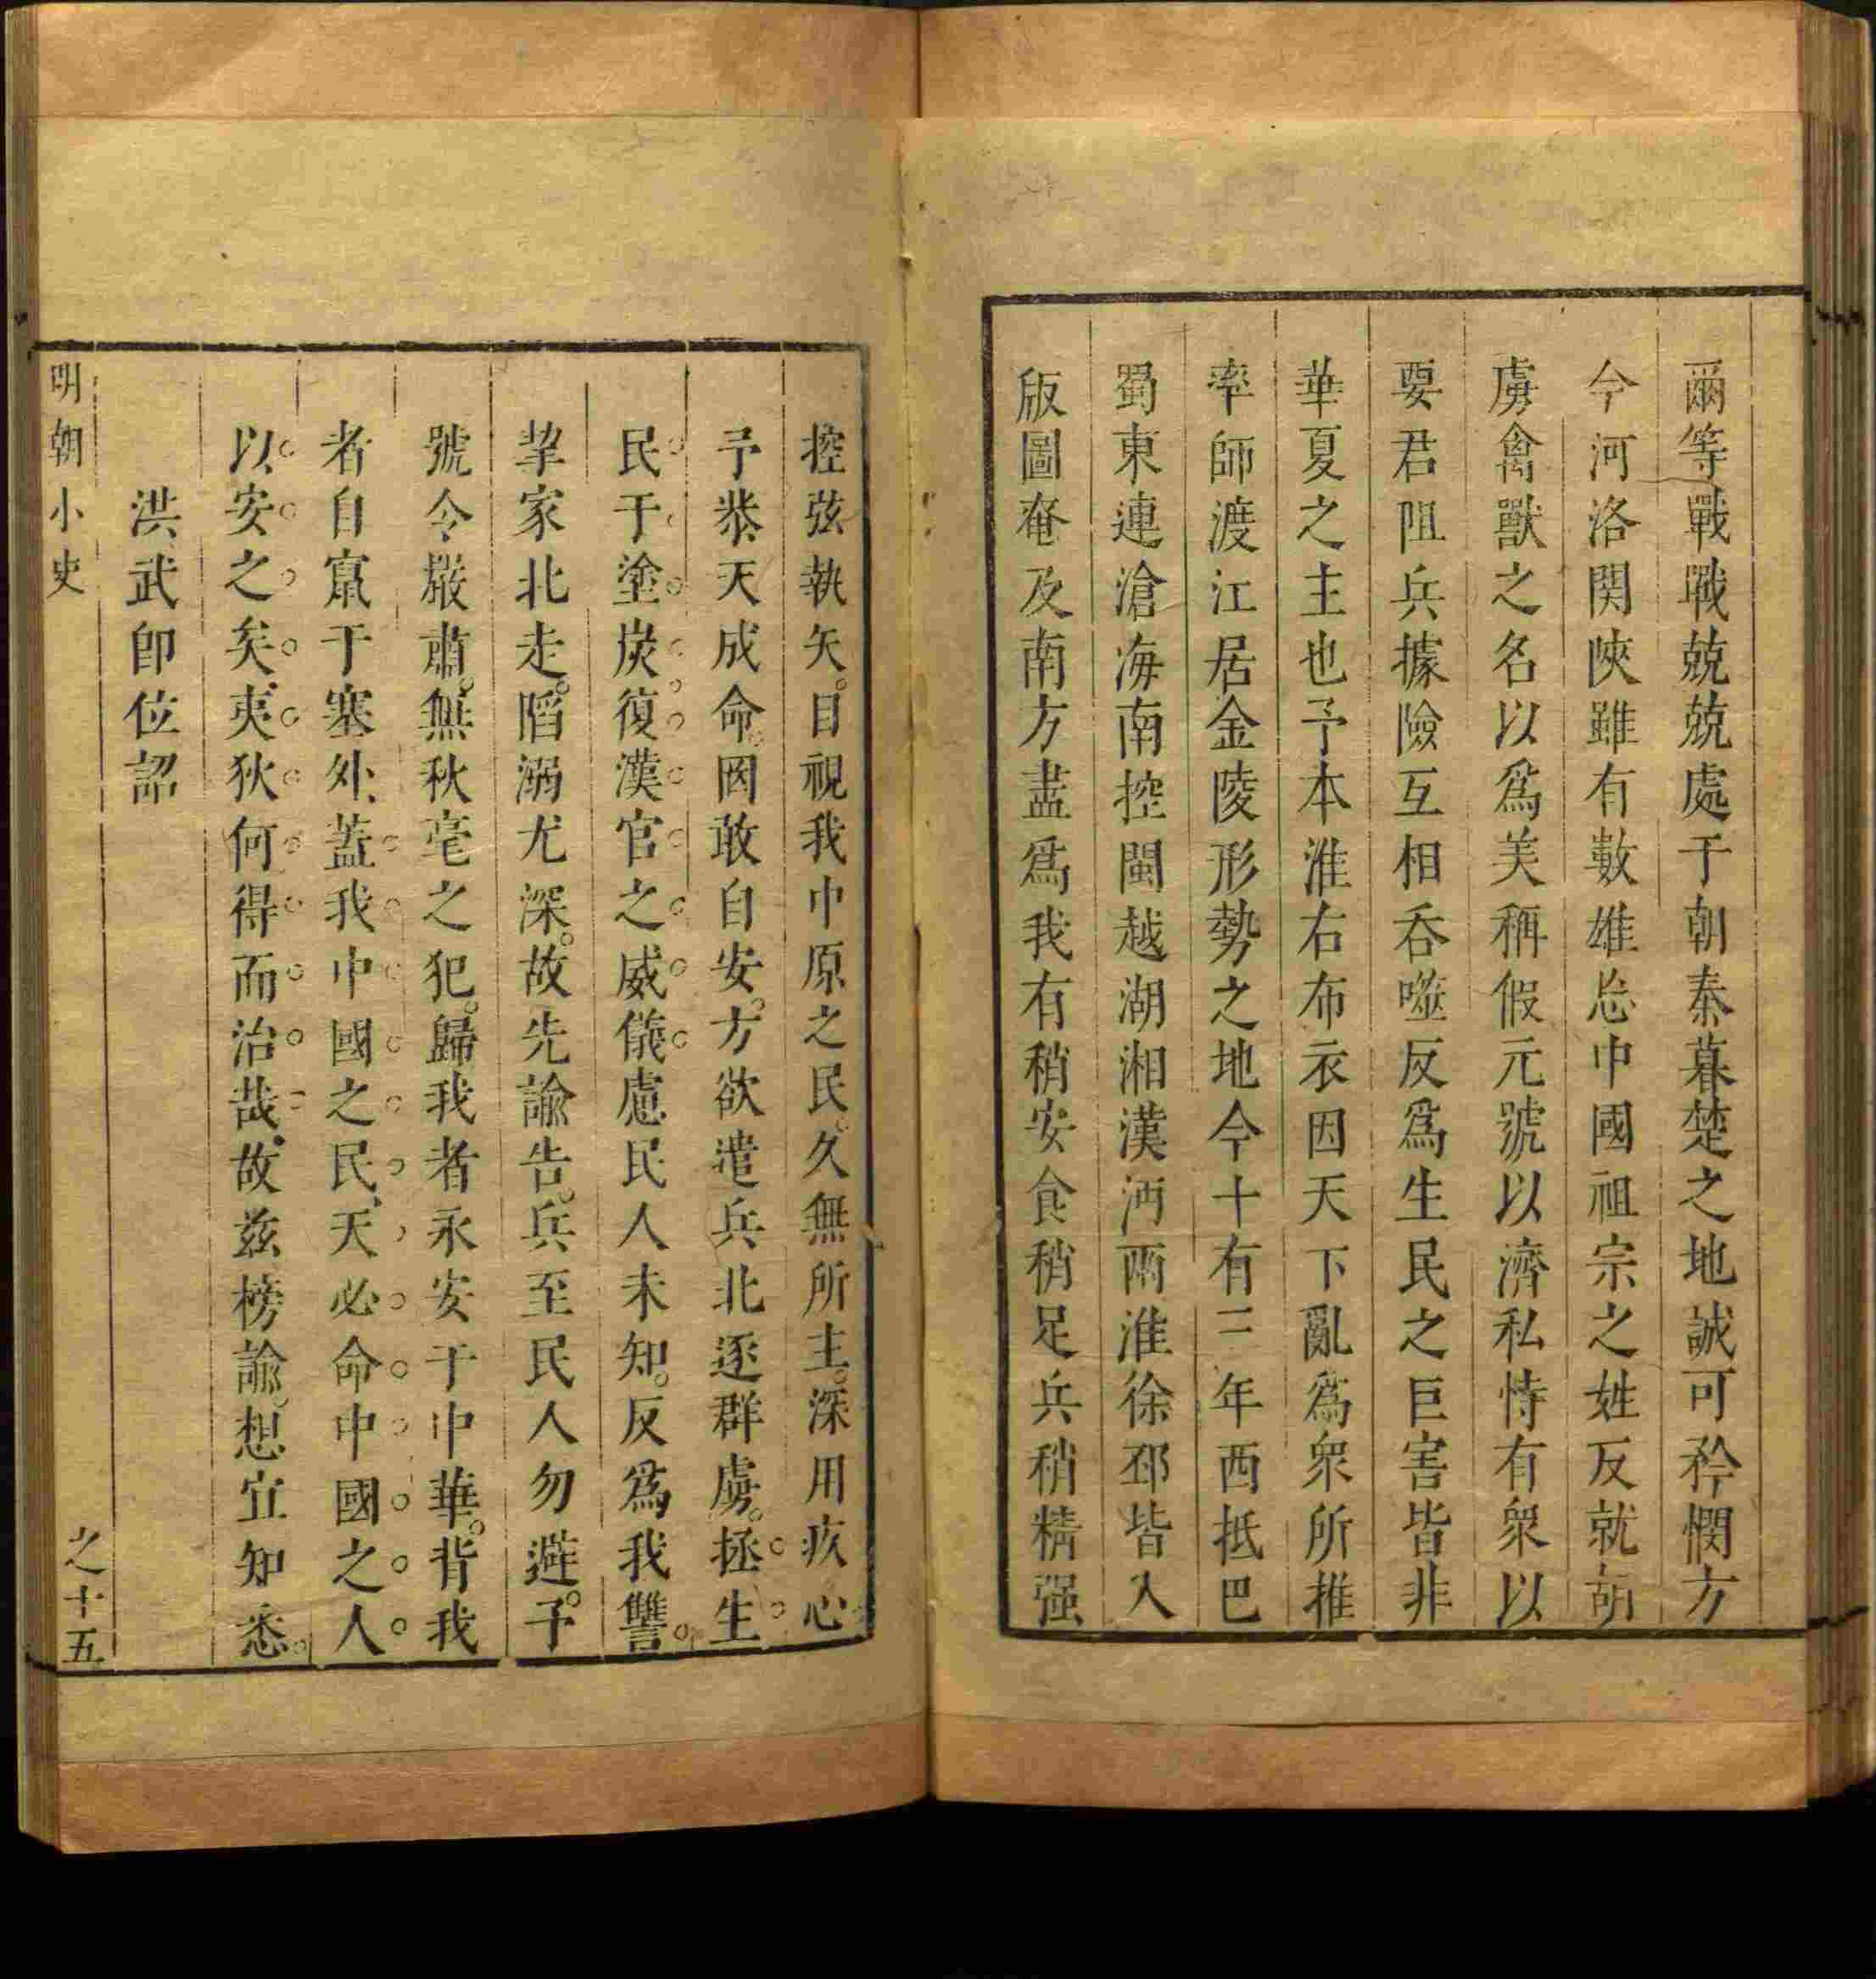 爾等戰戰兢兢處于朝秦暮楚之地誠可矜憫方
今河洛関陝雖有數雄忘中國祖宗之姓反就胡
虜禽獸之名以爲美稱假元號以濟私恃有衆以
要君阻兵據險互相吞噬反爲生民之巨害皆非
華夏之主也予本淮右布衣因天下亂爲衆所推
率師渡江居金陵形勢之地今十有三年西抵巴
蜀東連滄海南控閩越湖湘漢沔兩淮徐邳皆入
版圖奄及南方盡爲我有稍安食稍足兵稍精强
控弦執矢。目視我中原之民。久無所主。深用疚心
予恭天成命。罔敢自安。方欲遣兵北逐群虜。拯生
民于塗炭復漢官之威儀慮民人未知。反爲我讐。
挈家北走。陷溺尤深。故先諭告。兵至民人勿避。予
號令嚴肅。無秋毫之犯。歸我者永安于中華。背我
者自竄于塞外、蓋我中國之民、天必命中國之人
以安之矣、夷狄何得而治哉、故茲榜諭。想宜知悉。
洪武即位詔
明朝小史
之十五